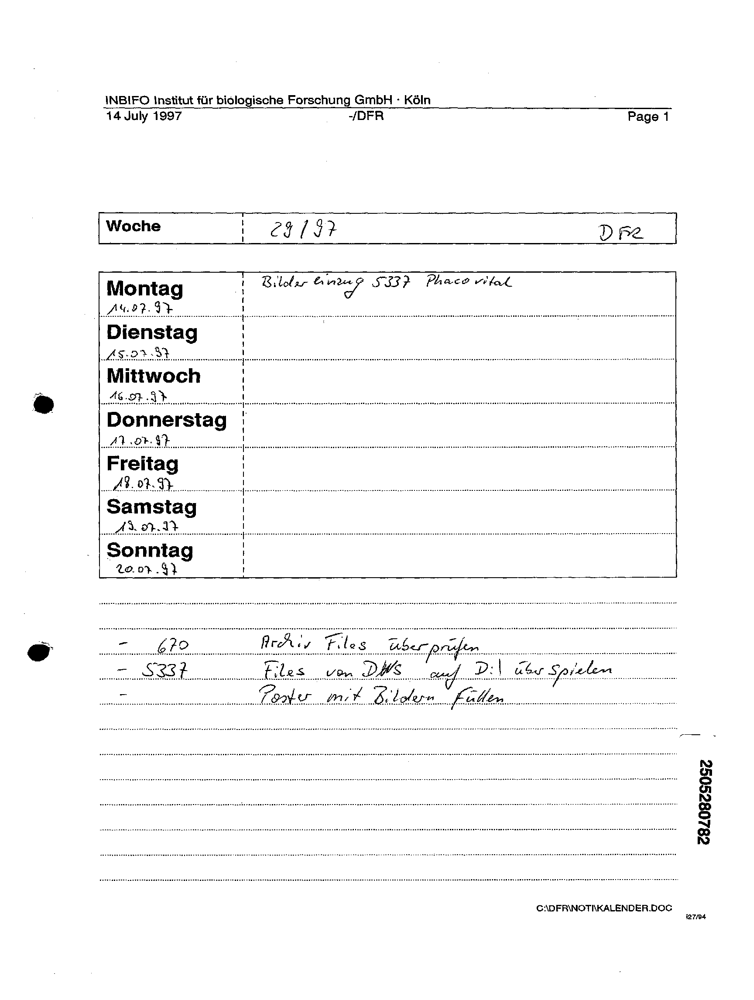 INBIFO Institut für biologische Forschung GmbH · Köln
14 July 1997 -/DFR Page 1
Woche 29/97 DFR
Montag Bildereinzug 5337 Phacovital
14.07.97
Dienstag
15.07.97
Mittwoch
16.07.97
Donnerstag
17.07.97
Freitag
18.07.97
Samstag
19.07.97
Sonntag
20.07.97
- 670 Archiv Files überprüfen
- 5337 Files von DWS auf D:\ überspielen
- Poster mit Bildern füllen
2505280782
C:\DFR\NOTI\KALENDER.DOC
I27/94